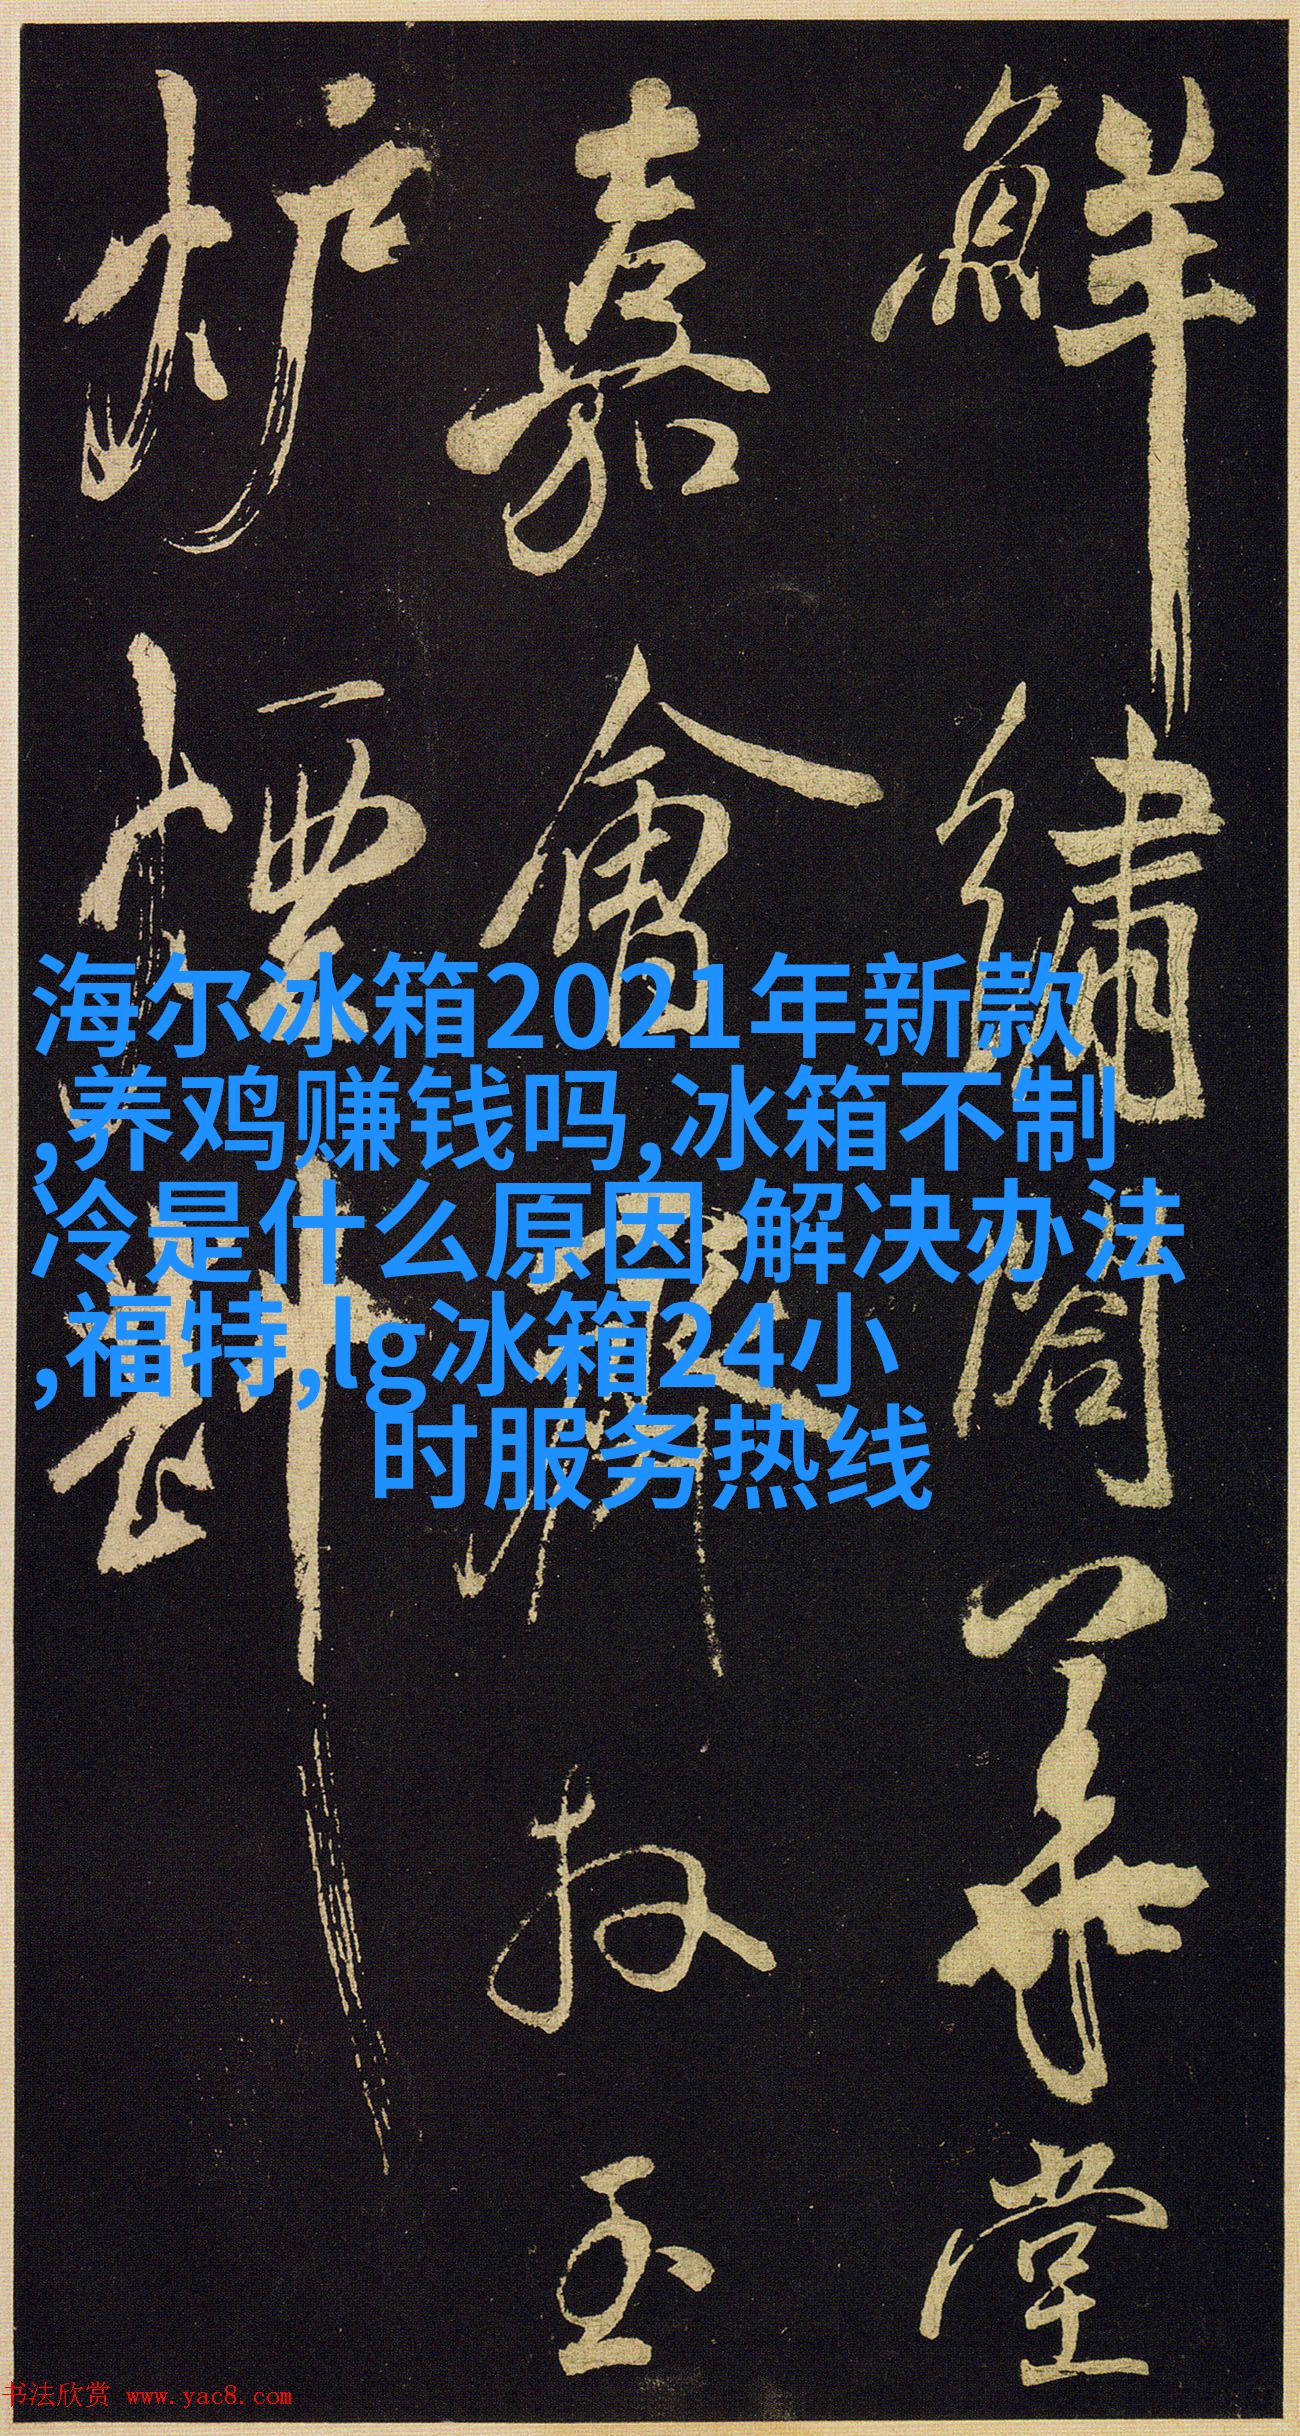 鮮繡閣一華堂
嘉會賓□放玉
炉標斟
海尔冰箱2021年新款
,养鸡赚钱吗,冰箱不制
冷是什么原因 解决办法
,福特,lg冰箱24小
时服务热线
书法欣赏 www.yac8.com